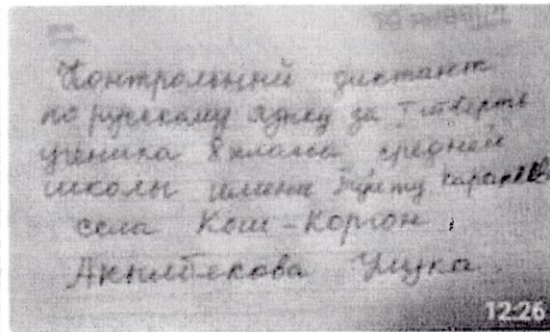 Контрольний диктант
по русскому языку за I четверть
ученика 8 класса средней
школы имени
села Кош-Коргон,
Акылбекова Улука.
12:26